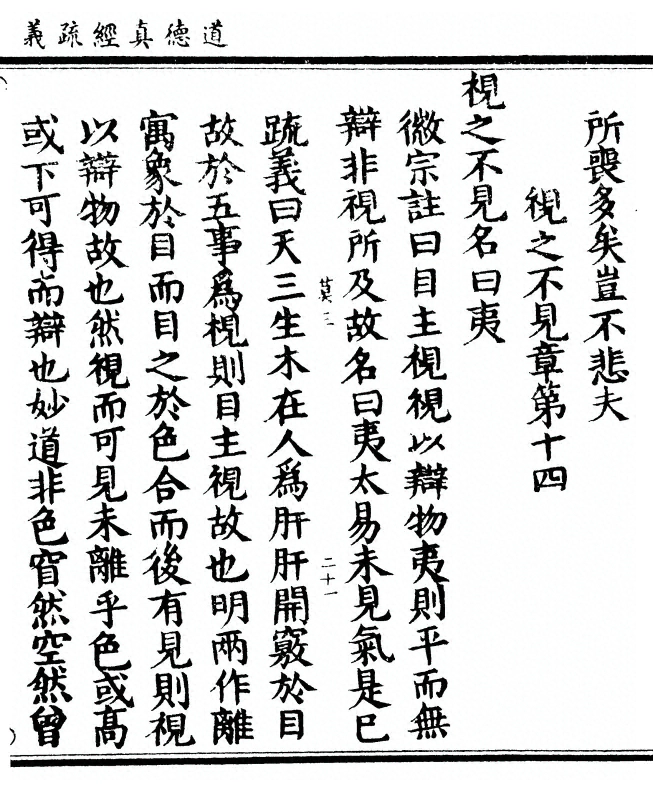 道德真經疏義
所喪多矣豈不悲夫
視之不見章第十四
視之不見名曰夷
徽宗註曰目主視視以辯物夷則平而無
辯非視所及故名曰夷太易未見氣是已
二十一
疏義曰天三生木在人爲肝肝開竅於目
故於五事爲視則目主視故也明兩作離
寓象於目而目之於色合而後有見則視
以辯物故也然視而可見未離乎色或高
或下可得而辯也妙道非色窅然空然曾